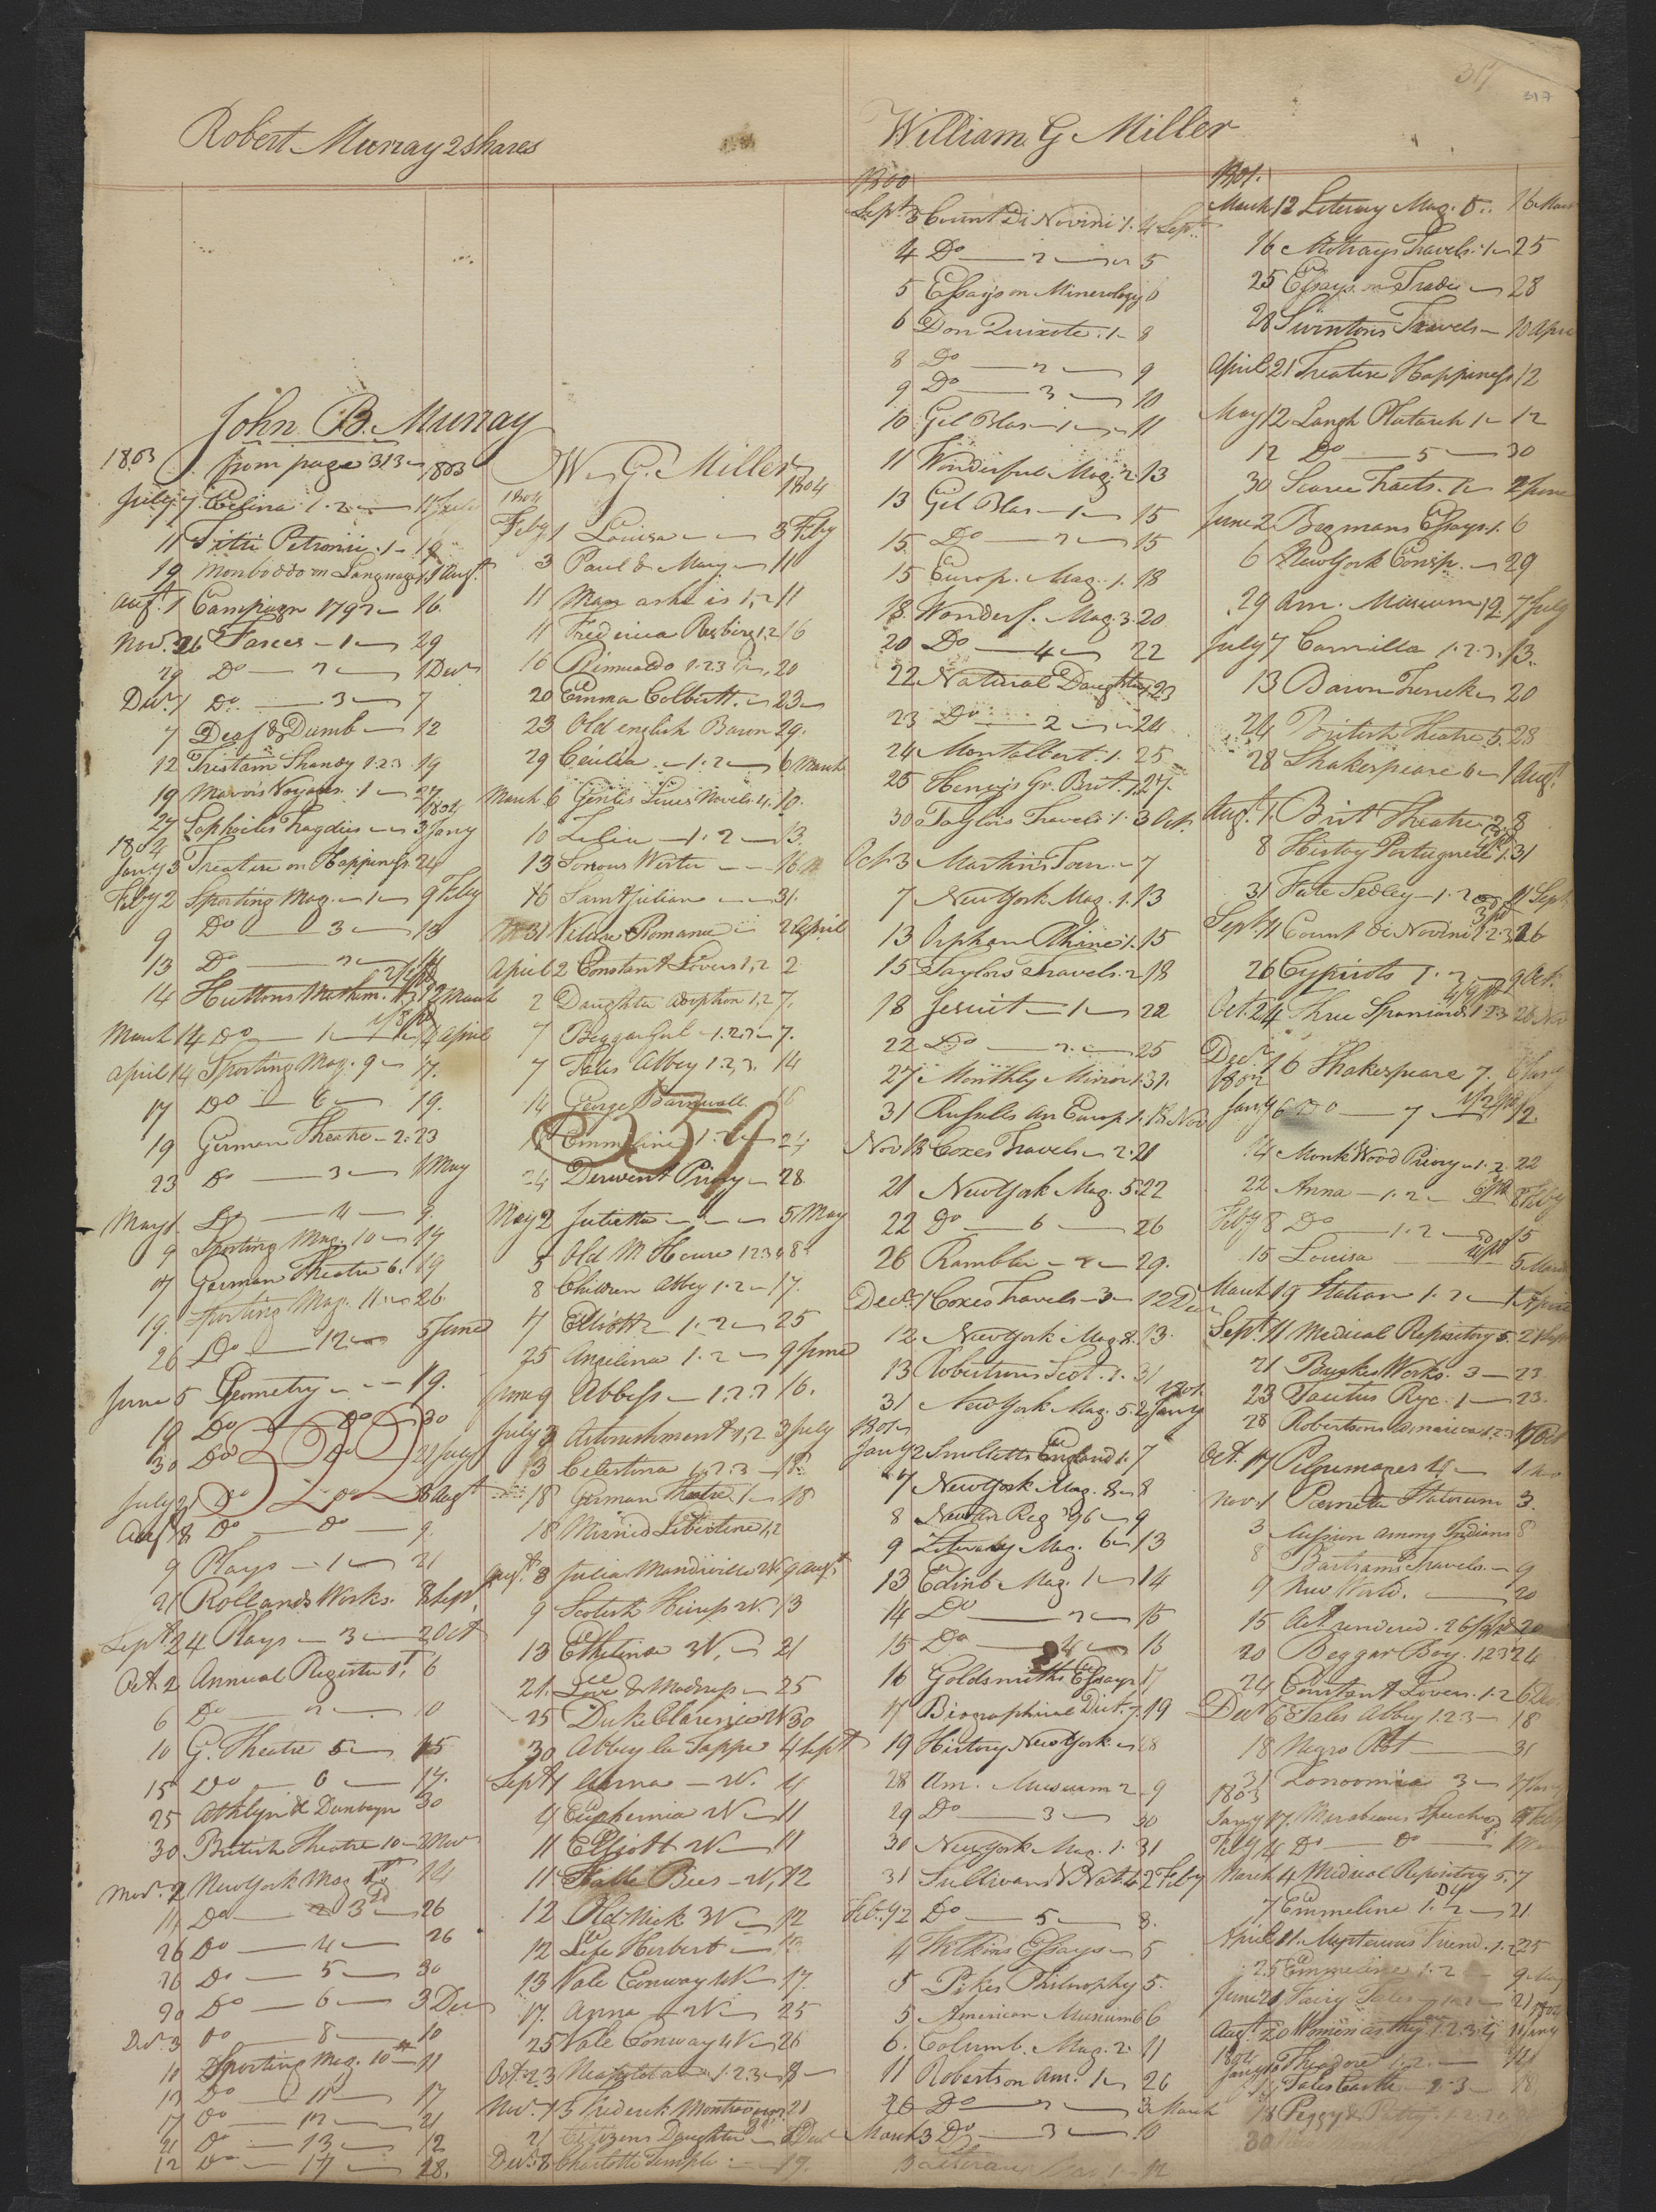 317
317
Robert Murray 2 shares
John B. Murray
1803 from page 313 1803
July 7 Celina 1.2 11 July
11 Titti Petronii 1 19
19 Monboddo on Language 1 1 Augt
Augt 1 Campaign 1792 16
Nov. 26 Fasces 1 29
29 Do 2 1 Decr
Decr 1 Do 3 7
7 Deaf & Dumb 12
12 Tristam Shandy 1.2.3 19
19 Mavors Voyages 1 27
27 Sophocles Tragdies 3 Jany 1804
1804
Jany 3 Treatise on Happiness 24
Feby 2 Sporting Mag. 1 9 Feby
9 Do 3 13
13 Do 2 14
14 Huttons Mathem. 12 March
March 14 Do 1 April
April 14 Sporting Mag. 9 17.
17 Do 6 19.
19 German Theatre 2. 23
23 Do 3 1 May
May 1 Do 4 9.
9 Sporting Mag. 10 17
17 German Theatre 6. 19
19. Sporting Mag. 11 26
26 Do 12 5 June
June 5 Geometry 19.
19 Do Do 30
30 Do Do 21 July
322
July 21 Do Do 8 Augt
Augt 8 Do Do 9.
9 Plays 1 21
21 Rollands Works. 8 Sept.
Sept 24 Plays 3 2 Oct
Oct. 2 Annual Register 1. 6
6 Do 2 10
10 G. Theatre 5 15
15 Do 6 17.
25 Athlyn & Dunbayn 30
30 British Theatre 10 2 Nov
Nov. 2 New York Mag 14
14 Do 3d 26
26 Do 4 26
26 Do 5 30
30 Do 6 3 Dec
Dec. 3 Do 8 10
10 Sporting Mag. 10 11
11 Do 11 17
17 Do 12 21
21 Do 13 12
12 Do 17 28.
W. G. Miller
1804 1804
Feby 1 Louisa 3 Feby
3 Paul & Mary 11
11 Man as he is 1,2 11
11 Frederica Risberg 1,2 16
16 Rinualdo 1.2.3 20
20 Emma Colbertt. 23
23 Old english Baron 29.
29 Cecilia 1.2 6 March
March 6 Genlis Lines Novels 4. 10.
10 Lelia 1.2 13
13 Sorrows Werter 16
16 Saint Julian 31.
31 Village Romance 2 April
April 2 Constant Lovers 1,2 2
2 Daughter adoption 1.2 7.
7 Beggar Girl 1.2.3 7.
7 Tales Abbey 1.2.3. 14
14 George Barnwall. 16
16 Emmeline 1.2 24
334
24 Derwent Priory 28
May 2 Julietta 5 May
5 Old M House 1234 8
8 Children Abbey 1.2 17.
17 Elliott 1.2 25
25 Angelina 1.2 9 June
June 9 Abbess 1.2.3 16.
July 3 Astonishment 1,2 3 July
13 Celestina 1.2.3 18
18 German Theatre. 1 18
18 Married Libertine 1,2
Augt. 8 Julia Mandiville 2V. 9 Augt
9 Scotish Heiress 2V. 13
13 Ethelinda 3V. 21
21. Love & Madness 25
25 Duke Clarence 2V 30
30 Abbey la Trappe 4 Sept
Sept 4 Anna 2V. 4
4 Euphemia 2V 11
11 Elliott 2V 11
11 Bees 2V, 12
12 Old Nick 3V 12
12 Life Herbert 13
13 Vale Conway 4V 17.
17. Anna 2V 25
25 Vale Conway 4V 26
Oct. 23 Neapolitan 1.2.3 8
Nov. 15 Frederick Montrovor 21
21 Citizens Daughter 8 Dec
Decr 8 Charlotte Temple 17.
William G Miller
1800
Sept 3 Count Di Novini 1. 4 Sept.
4 Do 2 5
5 Essays on Minerology 6
6 Don Quixote. 1 8
8 Do 2 9
9 Do 3 10
10 Gil Blas 1 11
11 Wonderful Mag. 2. 13
13 Gil Blas 1 15
15. Do 2 15
15 Europ. Mag. 1. 18
18. Wonderf. Mag. 3. 20
20 Do 4 22
22 Natural Daughter 1 23
23 Do 2 24
24 Montalbert. 1. 25
25 Henry's Gr. Brit. 1. 27.
30 Taylors Travels 1. 3 Oct.
Oct. 3 Martins Tour. 7
7 New York Mag. 1. 13
13 Orphan Rhine 1. 15
15 Taylors Travels. 2 18
18 Jesuit 1 22
22 Do 2. 25
27 Monthly Mirror 1. 31.
31 Russels An Europ. 1. 13 Nov
Nov 13 Coxes Travels 2. 21
21 New York Mag. 5. 22
22 Do 6 26
26 Rambler 2 29.
Decr. 1 Coxes Travels 3 12 Dec
12 New York Mag. 8. 13.
13 Robertsons Scot. 1. 31
31 New York Mag. 5. 2 Jany 1801.
1801
Jany 2 Smolletts England 1. 7
7 New York Mag. 8 8
8 New An Reg '96 9
9 Literary Mag. 6 13
13 Edinb. Mag. 1 14
14 Do 2 15
15 Do 4 16
16 Goldsmiths Essays 17
17 Biographical Dict. 7. 19
19 History New York. 28
28 Am. Museum 2 9
29 Do 3 30
30 New York Mag. 1. 31
31 Sullivans V Nat. 4 2 Feby
Feby 2 Do 5 8.
4 Wilkins Essays 5
5 Pikes Philosophy 5.
5 American Museum 6 6
6. Columb. Mag. 2. 11
11 Robertson Am. 1 26
26 Do 2 3 March
March 3 Do 3 10
Literary Mag 1 12
1801.
March 12 Literary Mag. 5. 16 March
16 Motrays Travels. 1 25
25 Essays on Trade 28
28 Swintons Travels 10 April
April 21 Treatise Happiness 12
May 12 Langh Plutarch 1 12
12 Do 5 30
30 Scarce Tracts. 1 2 June
June 2 Begmans Essays. 1. 6
6 New York Consp. 29
29 Am. Museum 12. 7 July
July 7 Camilla 1.2.3. 13.
13 Baron Trenck 20
24 British Theatre 5. 28
28 Shakespeare 6 1 Augt.
Augt. 1. Brit Theatre 2. 8
8 History Portuguese 1. 31
31 Kate Sedley 1.2 11 Sept
Sept. 11 Count di Novini 1.2.3 26
26 Cypriots 1.2 9 Oct.
Oct. 24 Three Spaniards 1 2 3 26 Nov
Decr 16 Shakespeare 7. 6 Jany
1802
Jany 6 Do 7 12.
14 Monk Wood Priory 1.2. 22
22 Anna 1.2 8 Feby
Feby 8 Do 1.2 15
15 Louisa 5 March
March 19 Italian 1.2 1 April
Sept. 11 Medical Repository 5. 21 Sept
21 Burkes Works. 3 23
23 Tacitus Ryc. 1 23.
28 Robertsons America 1.2.3 17 Oct
Oct. 17 Pilgrimages 4 1 Nov
Nov. 1 Pameta Statorum 3.
3 Mission Among Indians 8
8 Bartrams Travels. 9
9 New World. 20
15 Act rendered. 20
20 Beggar Boy. 1 2 3 24
24 Constant Lovers. 1.2 6 Dec.
Decr 6 Tales Abbey 1.2.3 18
18 Negro Plot 31
31 Zonoomia 3 17 Jany
1803
Jany 17. Mirabeaus Speeches 4 Feby
Feby 4 Do Do
March 4 Medical Repository 5. 7
7 Emmeline 1.2 21
April 11. Mysterious Friend. 1.2 25
25 Emmeline 1.2 9 May
June 20 Fairy Tales 21
Augt. 20 Women as they 1.2.3.4 11 Jany 1804
1804
Jany 10 Theodore 1.2. 14
14 Tales Castle 2.3 18
18 Peggy & Patty. 1.2.3
30